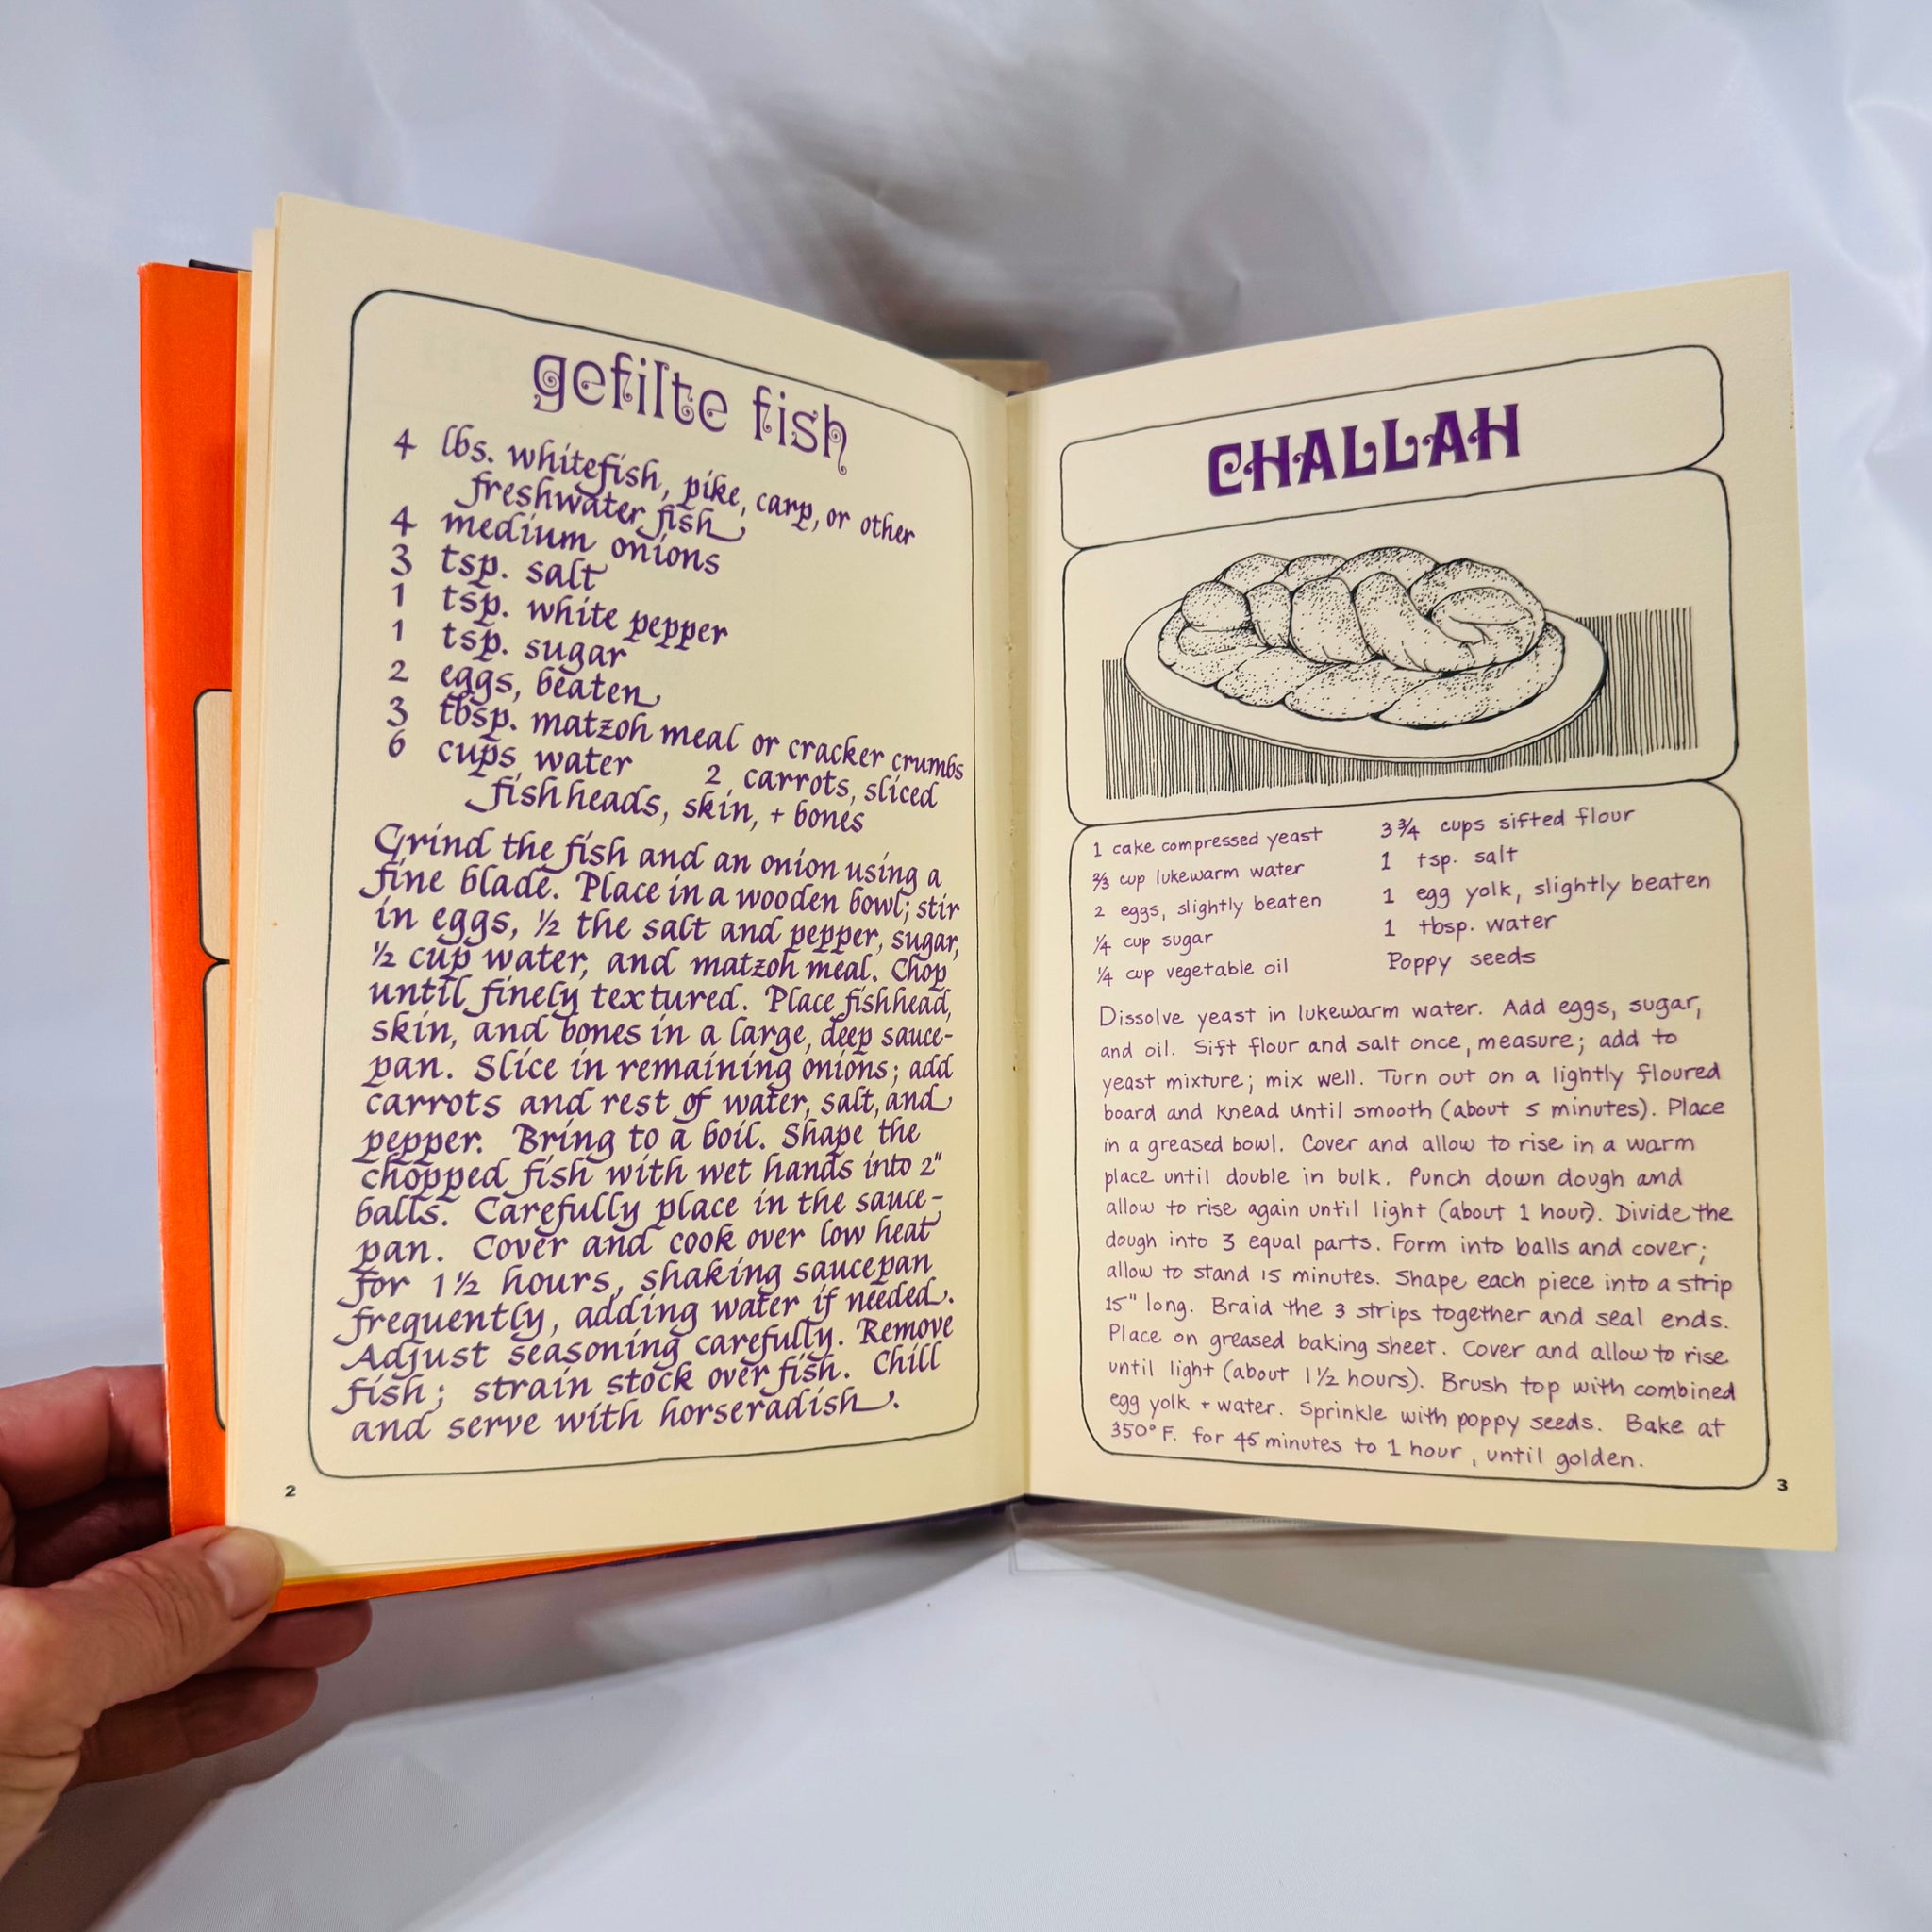 gefilte fish
4 lbs. whitefish, pike, carp, or other
freshwater fish
4 medium onions
3 tsp. salt
1 tsp. white pepper
1 tsp. sugar
2 eggs, beaten
3 tbsp. matzoh meal or cracker crumbs
6 cups water 2 carrots, sliced
fish heads, skin, + bones
Grind the fish and an onion using a
fine blade. Place in a wooden bowl; stir
in eggs, ½ the salt and pepper, sugar,
½ cup water, and matzoh meal. Chop
until finely textured. Place fishhead,
skin, and bones in a large, deep sauce-
pan. Slice in remaining onions; add
carrots and rest of water, salt, and
pepper. Bring to a boil. Shape the
chopped fish with wet hands into 2"
balls. Carefully place in the sauce-
pan. Cover and cook over low heat
for 1½ hours, shaking saucepan
frequently, adding water if needed.
Adjust seasoning carefully. Remove
fish; strain stock over fish. Chill
and serve with horseradish.
2
CHALLAH
1 cake compressed yeast
⅔ cup lukewarm water
2 eggs, slightly beaten
¼ cup sugar
¼ cup vegetable oil
3¾ cups sifted flour
1 tsp. salt
1 egg yolk, slightly beaten
1 tbsp. water
Poppy seeds
Dissolve yeast in lukewarm water. Add eggs, sugar,
and oil. Sift flour and salt once, measure; add to
yeast mixture; mix well. Turn out on a lightly floured
board and knead until smooth (about 5 minutes). Place
in a greased bowl. Cover and allow to rise in a warm
place until double in bulk. Punch down dough and
allow to rise again until light (about 1 hour). Divide the
dough into 3 equal parts. Form into balls and cover;
allow to stand 15 minutes. Shape each piece into a strip
15" long. Braid the 3 strips together and seal ends.
Place on greased baking sheet. Cover and allow to rise
until light (about 1½ hours). Brush top with combined
egg yolk + water. Sprinkle with poppy seeds. Bake at
350° F. for 45 minutes to 1 hour, until golden.
3